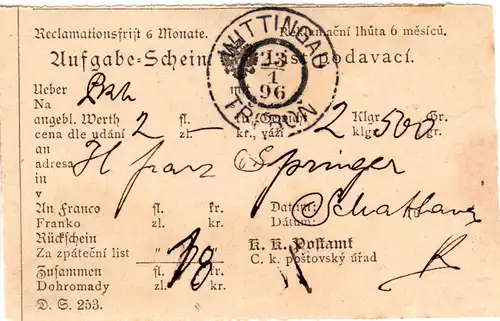 Reclamationsfrist 6 Monate. Reklamační lhůta 6 měsíců.
Aufgabe-Schein List podavací.
WITTINGAU
23
1
96
TŘEBOŇ
Ueber
Na
angebl. Werth 2 fl. kr., Gewicht 2 Klgr 500 Gr.
cena dle udání – zl. kr., váží klgr. gr.
an H Franz Springer
adresa
in
v
An Franco fl. kr. Datum:
Franko zl. kr. Dátum:
Rückschein
Za zpáteční list " " K. K. Postamt
Zusammen fl. kr. C. k. poštovský úřad
Dohromady zl. kr.
D. S. 253.